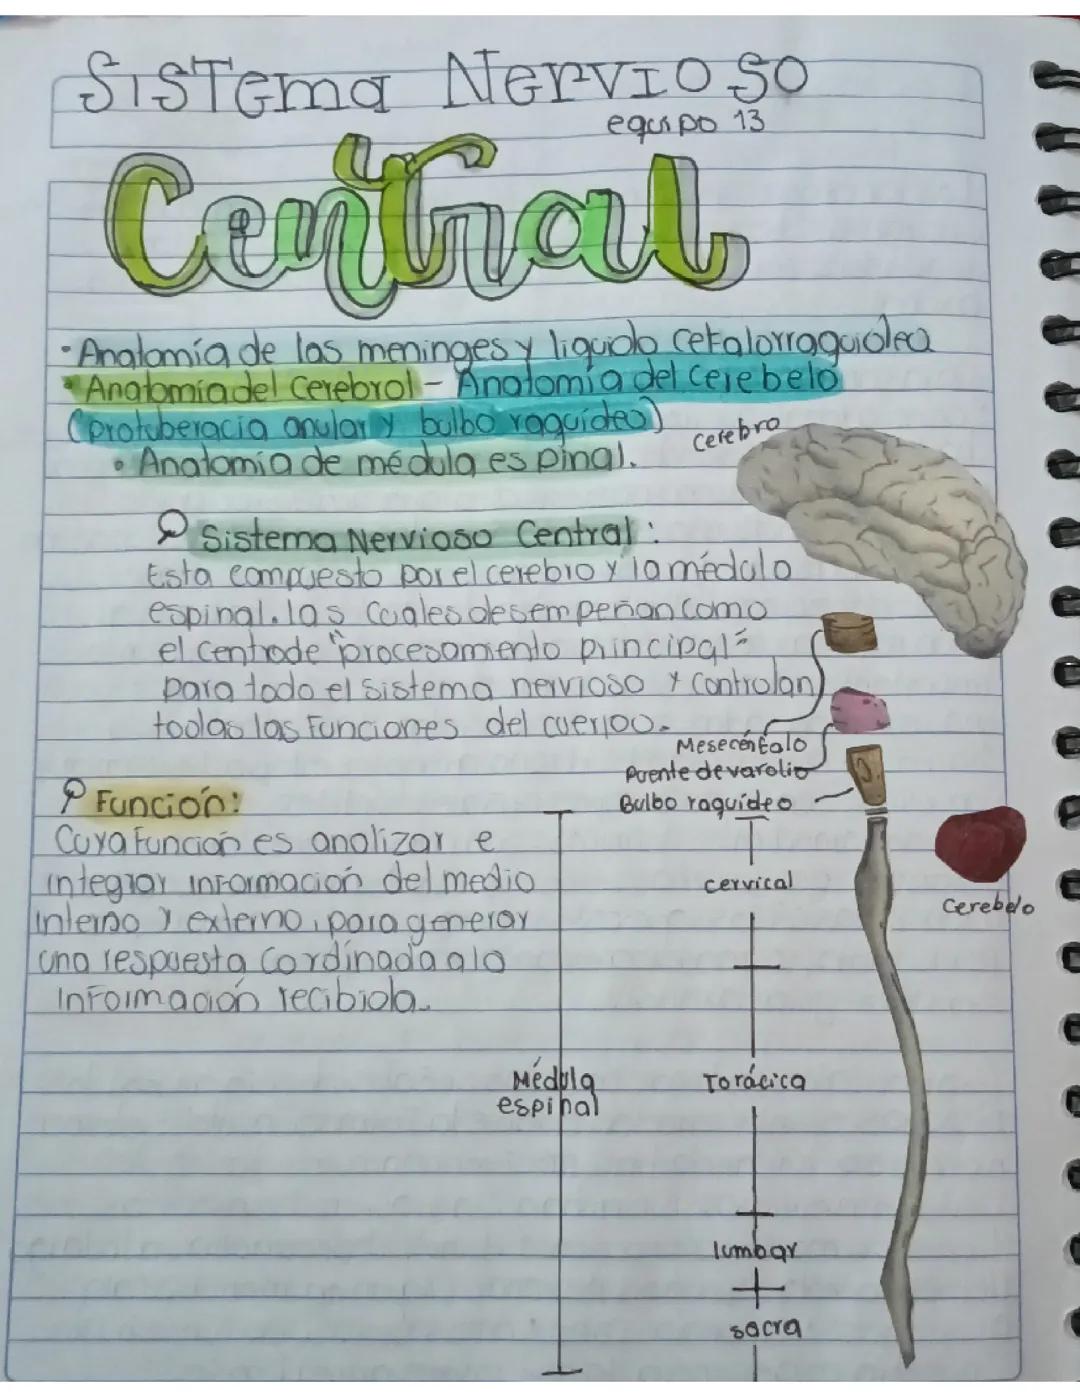 SISTema NerVIOSO
equipo 13
Central
· Anatomía de las meninges y liquido cefalorraquídeo
· Anatomia del cerebrol - Anatomía del cerebelo
(protuberacia anular y bulbo raquídeo)
· Anatomia de médula espinal.
cerebro
Sistema Nervioso Central :
Esta compuesto por el cerebro y la médula
espinal. las cuales desempeñan como
el centro de "procesamiento principal"
para todo el sistema nervioso y controlan
todas las Funciones del cuerpo.
Mesecéntalo
Puente de varolio
Bulbo raquídeo
Función:
Cuya Función es analizar e
integrar información del medio
interno y externo, para generar
una respuesta Cordinada a la
información recibida.
cervical
Cerebelo
Médula
espinal
Torácica
lumbar
sacra